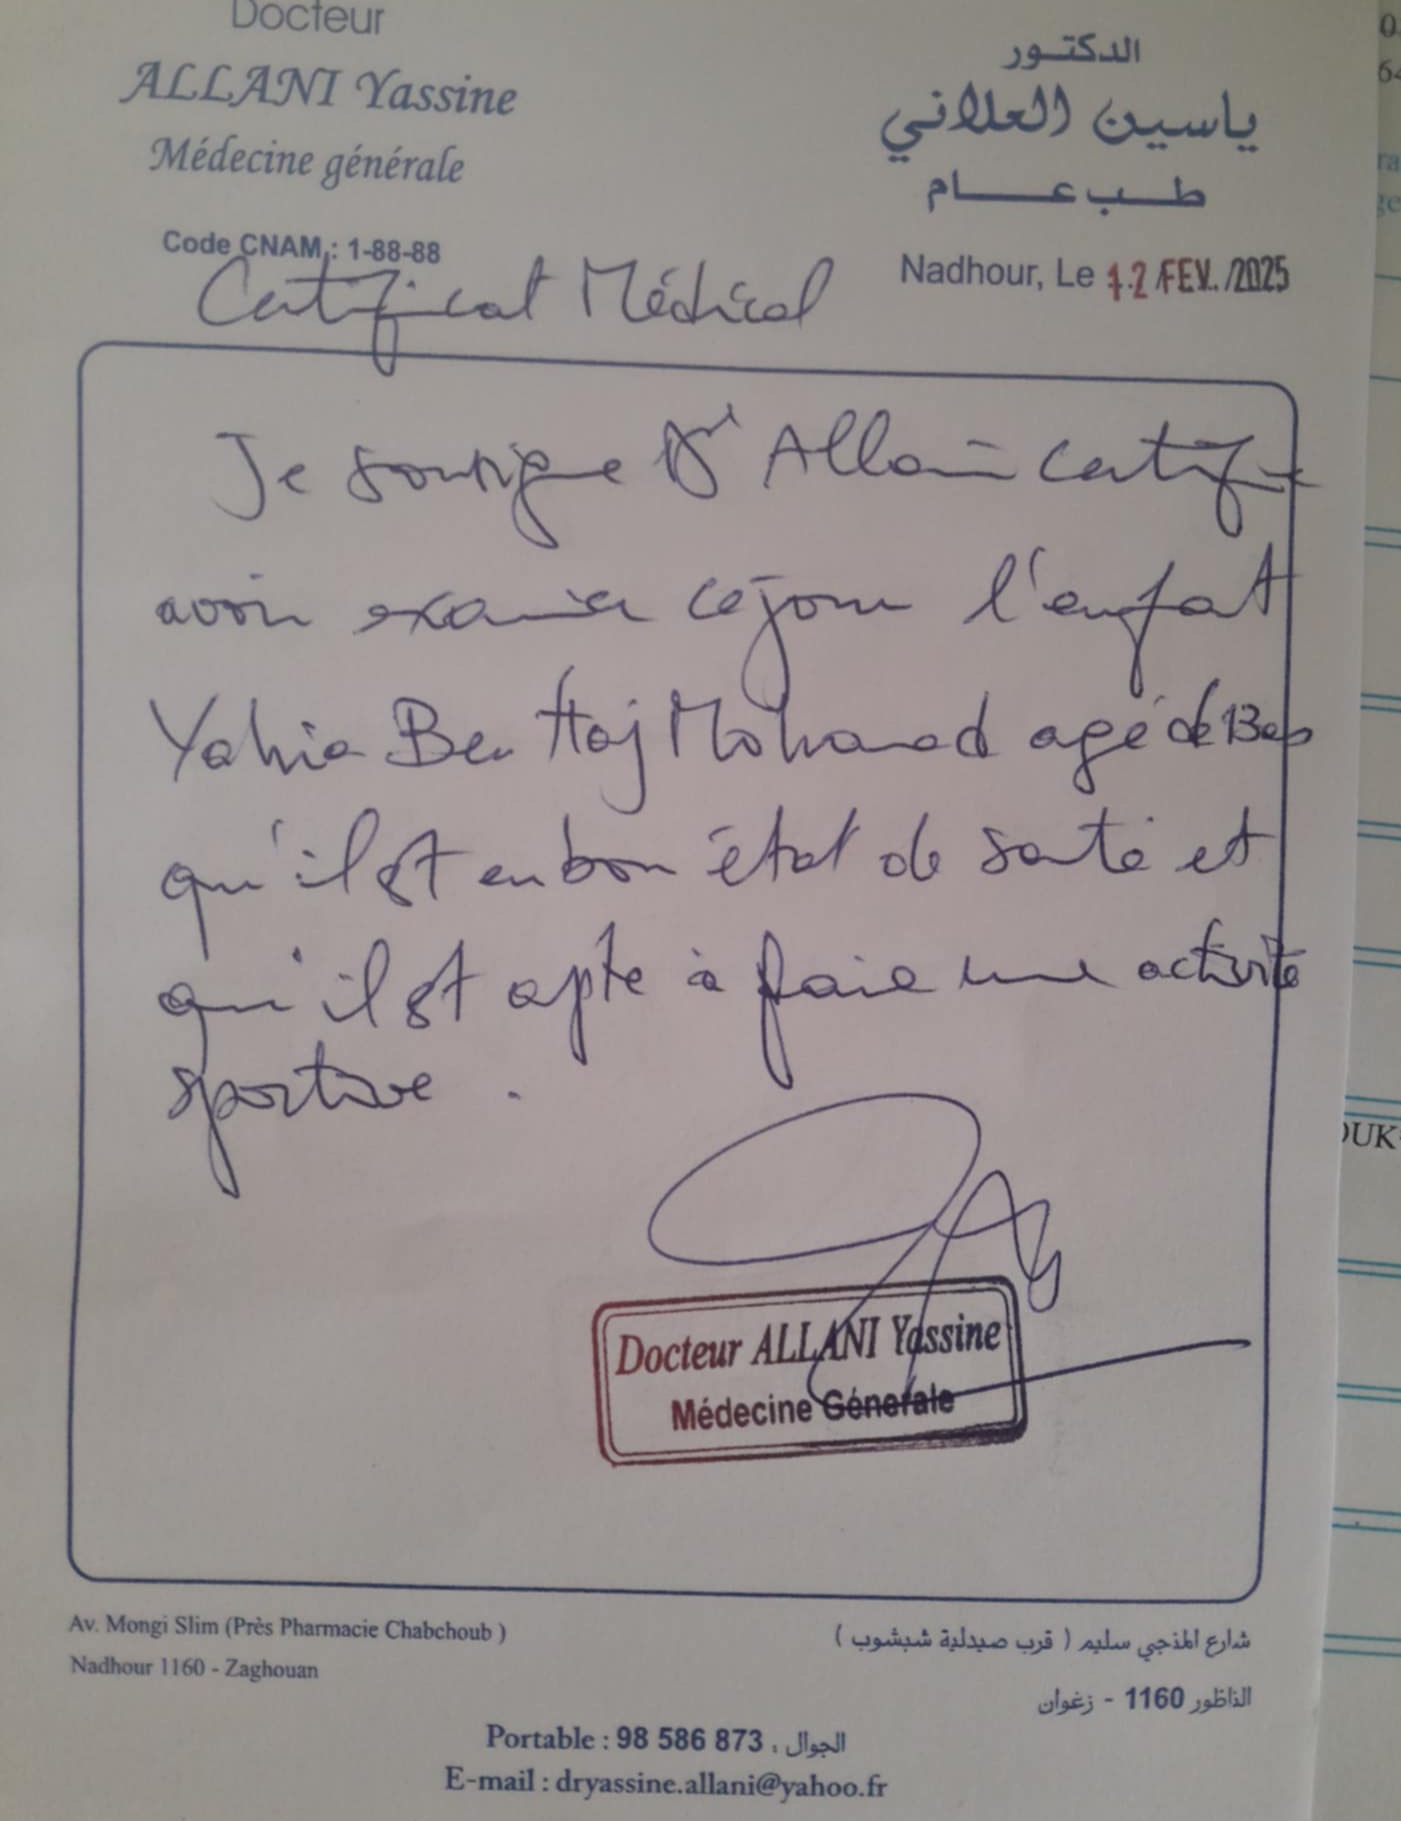 Docteur
ALLANI Yassine
Médecine générale
Code CNAM : 1-88-88
الدكتور
ياسين العلاني
طب عام
Nadhour, Le 12 FEV. 2025
Certificat Médical
Je soussigne Dr Allani certifie
avoir examiner ce jour l'enfant
Yahia Ben Haj Mohamed agé de 13 ans
qu'il est en bon état de santé et
qu'il est apte à faire une activité
sportive.
Docteur ALLANI Yassine
Médecine Génerale
Av. Mongi Slim (Près Pharmacie Chabchoub )
Nadhour 1160 - Zaghouan
شارع المنجي سليم ( قرب صيدلية شبشوب )
الناظور 1160 - زغوان
Portable : 98 586 873 : الجوال
E-mail : dryassine.allani@yahoo.fr
OUK